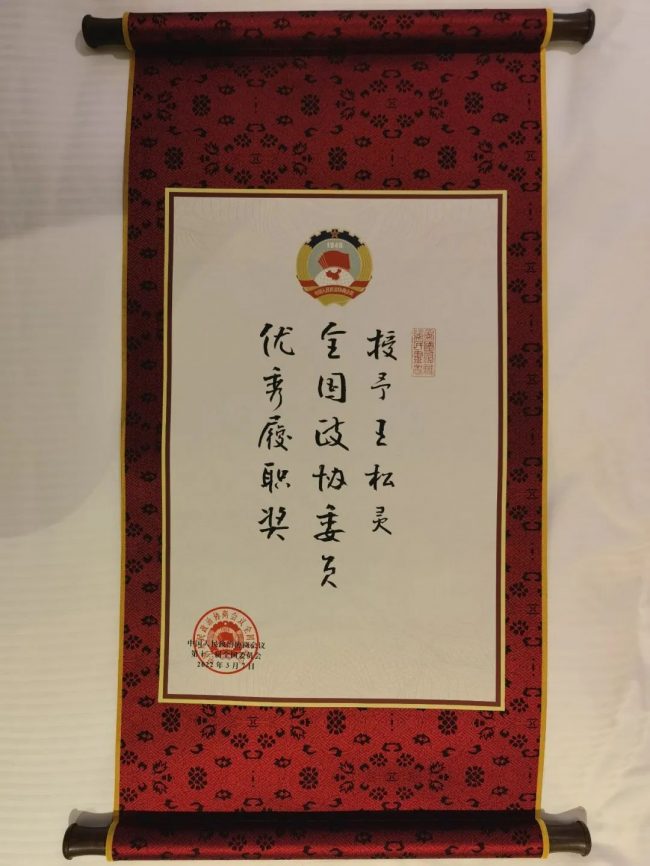 1949
中国人民政治协商会议
授予王松灵
全国政协委员
优秀履职奖
中国人民政治协商会议
第十三届全国委员会
2022年3月7日